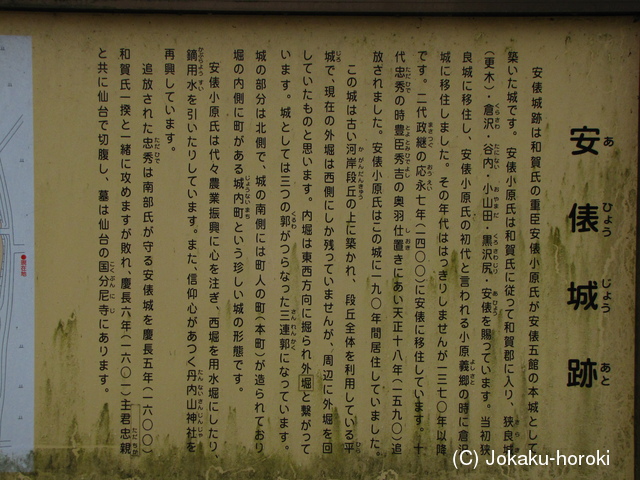 安俵城跡
あひょうじょうあと
安俵城跡は和賀氏の重臣安俵小原氏が安俵五館の本城として
築いた城です。安俵小原氏は和賀氏に従って和賀郡に入り、狭良城
(更木)・倉沢・谷内・小山田・黒沢尻・安俵を賜っています。当初狭
良城に移住し、安俵小原氏の初代と言われる小原義郷の時に倉沢
城に移住しました。その年代ははっきりしませんが一三七〇年以降
です。二代政継の応永七年(一四〇〇)に安俵に移住しています。十
代忠秀の時豊臣秀吉の奥羽仕置きにあい天正十八年(一五九〇)追
放されました。安俵小原氏はこの城に一九〇年間居住していました。
この城は古い河岸段丘の上に築かれ、段丘全体を利用している平
城で、現在の外堀は西側にしか残っていませんが、周辺に外堀を回
していたものと思います。内堀は東西方向に掘られ外堀と繋がって
います。城としては三つの郭がつらなった三連郭になっています。
城の部分は北側で、城の南側には町人の町(本町)が造られており
堀の内側に町がある城内町という珍しい城の形態です。
安俵小原氏は代々農業振興に心を注ぎ、西堀を用水堀にしたり、
鏑用水を引いたりしています。また、信仰心があつく丹内山神社を
再興しています。
追放された忠秀は南部氏が守る安俵城を慶長五年(一六〇〇)
和賀氏一揆と一緒に攻めますが敗れ、慶長六年(一六〇一)主君忠親
と共に仙台で切腹し、墓は仙台の国分尼寺にあります。
●現在地
(C) Jokaku-horoki